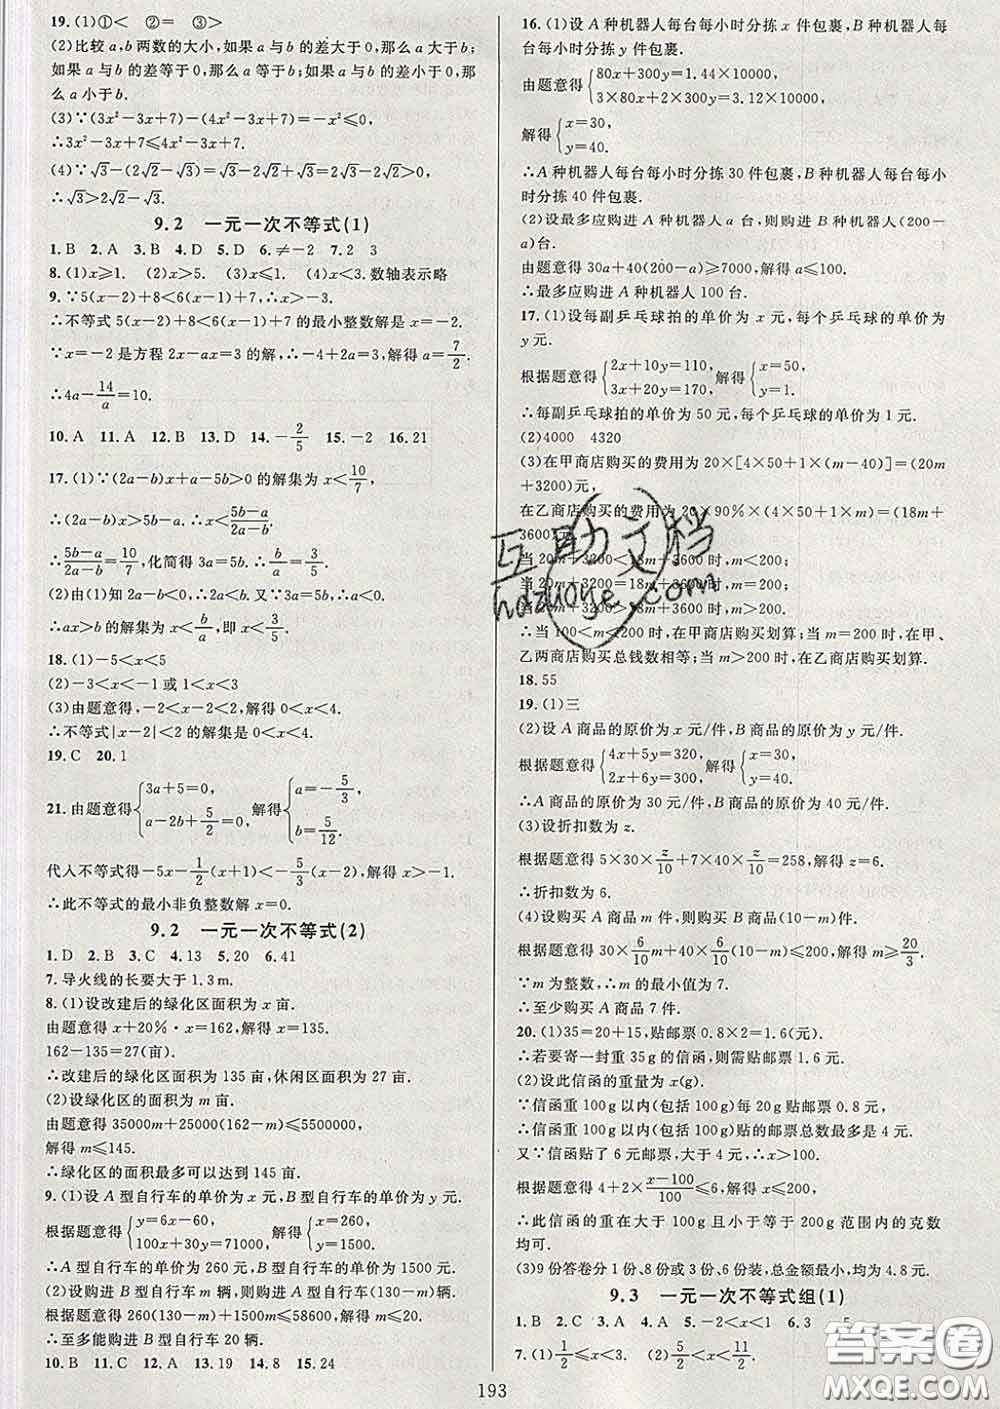 19.(1)①< ②= ③>
(2)比较a,b两数的大小,如果a与b的差大于0,那么a大于b;
如果a与b的差等于0,那么a等于b;如果a与b的差小于0,那
么a小于b.
(3)∵(3x²-3x+7)-(4x²-3x+7)=-x²≤0,
∴3x²-3x+7≤4x²-3x+7.
(4)∵√3-(2√2-√3)=√3-2√2+√3=2√3-2√2>0,
∴√3>2√2-√3.
9.2 一元一次不等式(1)
1.B 2.A 3.B 4.D 5.D 6.≠-2 7.2 3
8.(1)x≥1. (2)x>5. (3)x≤1. (4)x<3.数轴表示略
9.∵5(x-2)+8<6(x-1)+7,∴x>-3.
∴不等式5(x-2)+8<6(x-1)+7的最小整数解是x=-2.
∵x=-2是方程2x-ax=3的解,∴-4+2a=3,解得a=7/2.
∴4a-14/a=10.
10.A 11.A 12.B 13.D 14.-2/5 15.-2 16.21
17.(1)∵(2a-b)x+a-5b>0的解集为x<10/7,
∴(2a-b)x>5b-a,∴x<(5b-a)/(2a-b).
∴(5b-a)/(2a-b)=10/7,化简得3a=5b.∴b/a=3/5.
(2)由(1)知2a-b<0,∴2a<b.又∵3a=5b,∴a<0.
∴ax>b的解集为x<b/a,即x<3/5.
18.(1)-5<x<5
(2)-3<x<-1或1<x<3
(3)由题意得,-2<x-2<2,解得0<x<4.
∴不等式|x-2|<2的解集是0<x<4.
19.C 20.1
21.由题意得{3a+5=0, a-2b+5/2=0,解得{a=-5/3, b=5/12.
代人不等式得-5x-1/2(x+1)<-5/3(x-2),解得x>-1.
∴此不等式的最小非负整数解x=0.
9.2 一元一次不等式(2)
1.D 2.A 3.C 4.13 5.20 6.41
7.导火线的长要大于1.3m.
8.(1)设改建后的绿化区面积为x亩.
由题意得x+20%·x=162,解得x=135.
162-135=27(亩).
∴改建后的绿化区面积为135亩,休闲区面积为27亩.
(2)设绿化区的面积为m亩.
由题意得35000m+25000(162-m)≤5500000,
解得m≤145.
∴绿化区的面积最多可以达到145亩.
9.(1)设A型自行车的单价为x元,B型自行车的单价为y元.
根据题意得{y=6x-60, 100x+30y=71000,解得{x=260, y=1500.
∴A型自行车的单价为260元,B型自行车的单价为1500元.
(2)设购进B型自行车m辆,则购进A型自行车(130-m)辆.
根据题意得260(130-m)+1500m≤58600,解得m≤20.
∴至多能购进B型自行车20辆.
10.B 11.C 12.B 13.19 14.8 15.24
16.(1)设A种机器人每台每小时分拣x件包裹,B种机器人每
台每小时分拣y件包裹.
由题意得{80x+300y=1.44×10000, 3×80x+2×300y=3.12×10000,
解得{x=30, y=40.
∴A种机器人每台每小时分拣30件包裹,B种机器人每台每
小时分拣40件包裹.
(2)设最多应购进A种机器人a台,则购进B种机器人(200-
a)台.
由题意得30a+40(200-a)≥7000,解得a≤100.
∴最多应购进A种机器人100台.
17.(1)设每副乒乓球拍的单价为x元,每个乒乓球的单价为
y元.
根据题意得{2x+10y=110, 3x+20y=170,解得{x=50, y=1.
∴每副乒乓球拍的单价为50元,每个乒乓球的单价为1元.
(2)4000 4320
(3)在甲商店购买的费用为20×[4×50+1×(m-40)]=(20m
+3200)元,
在乙商店购买的费用为20×90%×(4×50+1×m)=(18m+
3600)元.
当20m+3200<18m+3600时,m<200;
当20m+3200=18m+3600时,m=200;
当20m+3200>18m+3600时,m>200.
∴当100<m<200时,在甲商店购买划算;当m=200时,在甲、
乙两商店购买总钱数相等;当m>200时,在乙商店购买划算.
18.55
19.(1)三
(2)设A商品的原价为x元/件,B商品的原价为y元/件.
根据题意得{4x+5y=320, 2x+6y=300,解得{x=30, y=40.
∴A商品的原价为30元/件,B商品的原价为40元/件.
(3)设折扣数为z.
根据题意得5×30×z/10+7×40×z/10=258,解得z=6.
∴折扣数为6.
(4)设购买A商品m件,则购买B商品(10-m)件.
根据题意得30×6/10m+40×6/10(10-m)≤200,解得m≥20/3.
∵m为整数,∴m的最小值为7.
∴至少购买A商品7件.
20.(1)35=20+15,贴邮票0.8×2=1.6(元),
∴若要寄一封重35g的信函,则需贴邮票1.6元.
(2)设此信函的重量为x(g).
∵信函重100g以内(包括100g)每20g贴邮票0.8元,
∴信函重100g以内(包括100g)的贴邮票总数最多是4元.
又∵信函贴了6元邮票,大于4元,∴x>100.
根据题意得4+2×(x-100)/100≤6,解得x≤200.
∴此信函的重在大于100g且小于等于200g范围内的克数
均可.
(3)9份答卷分1份、8份或3份、6份装,总金额最小,均为4.8元.
9.3 一元一次不等式组(1)
1.B 2.C 3.A 4.A 5.-2<x<1 6.3 -5
7.(1)1/2≤x<3. (2)1/2<x≤1.
193
互助文档
hdzuoye.com
答案圈
MXQE.COM